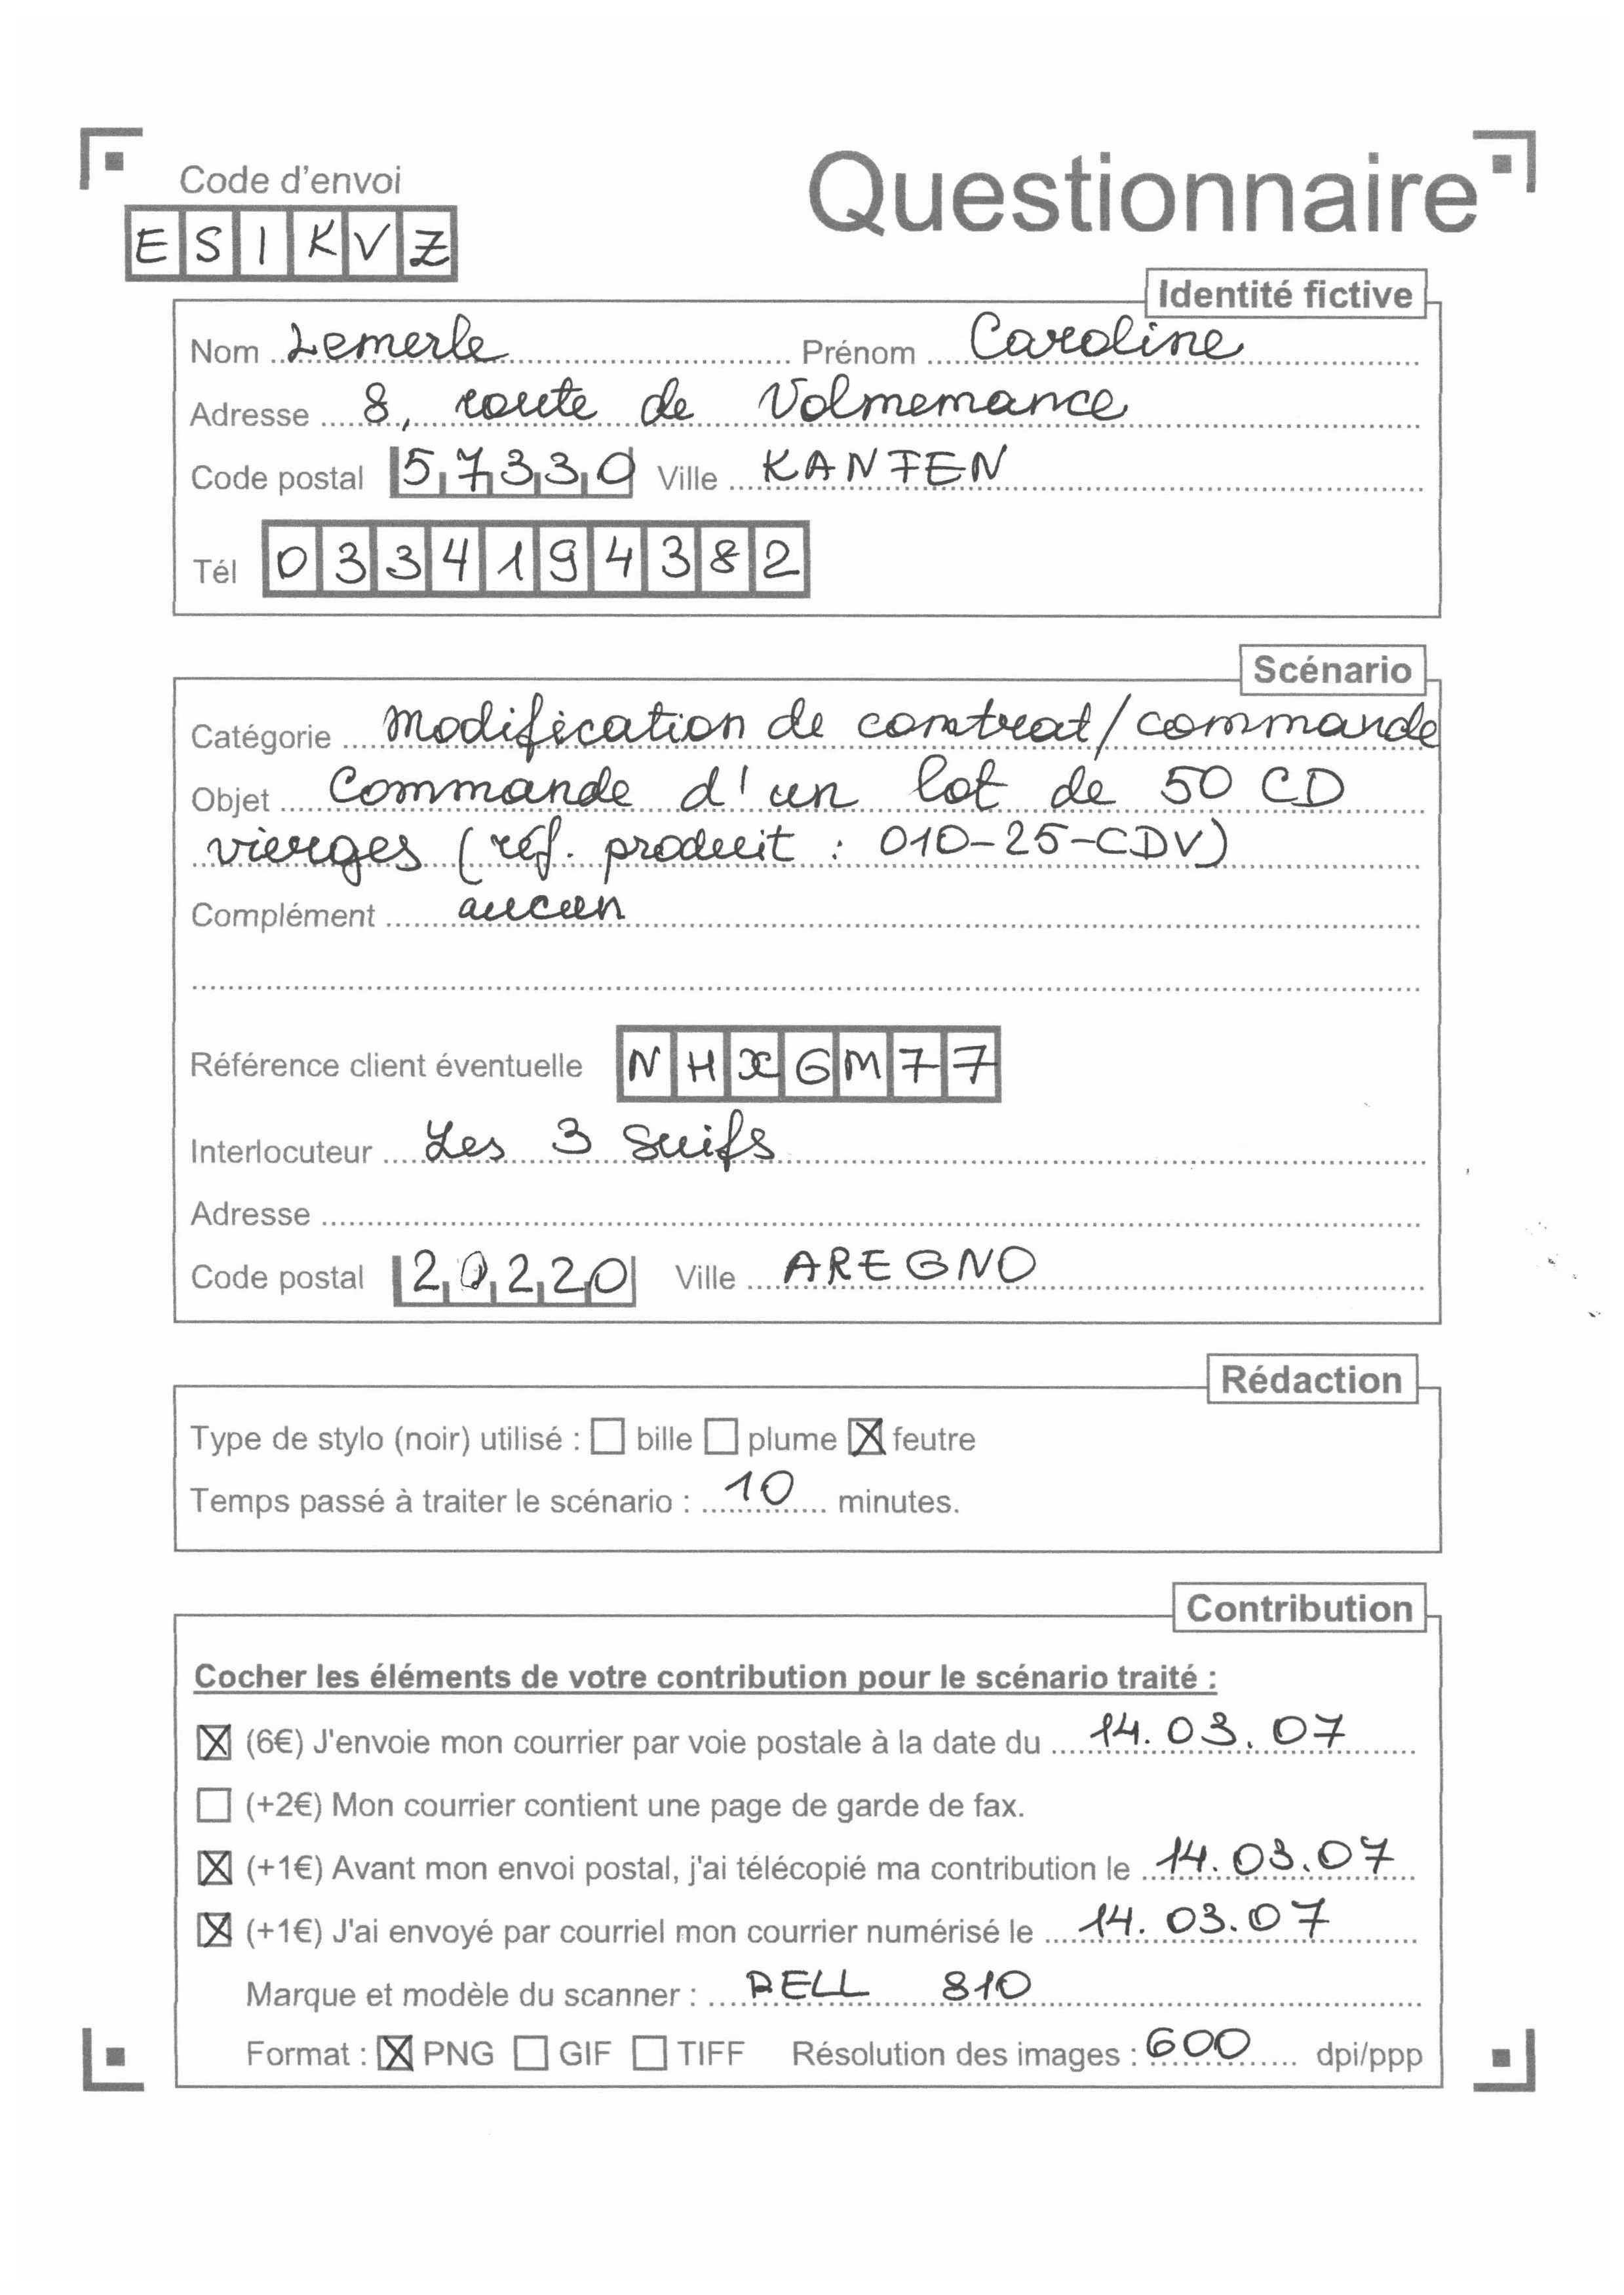 Code d'envoi
Questionnaire
ESIKVZ
Identité fictive
Nom Lemerle Prénom Caroline
Adresse 8, route de Volmemance
Code postal 57330 Ville KANFEN
Tél 0334194382
Scénario
Catégorie Modification de contrat/commande
Objet Commande d'un lot de 50 CD
vierges (réf. produit : 010-25-CDV)
Complément aucun
Référence client éventuelle NHXGM77
Interlocuteur Les 3 Suifs
Adresse
Code postal 20220 Ville AREGNO
Rédaction
Type de stylo (noir) utilisé : ☐ bille ☐ plume ☒ feutre
Temps passé à traiter le scénario : 10 minutes.
Contribution
Cocher les éléments de votre contribution pour le scénario traité :
☒ (6€) J'envoie mon courrier par voie postale à la date du 14.03.07
☐ (+2€) Mon courrier contient une page de garde de fax.
☒ (+1€) Avant mon envoi postal, j'ai télécopié ma contribution le 14.03.07
☒ (+1€) J'ai envoyé par courriel mon courrier numérisé le 14.03.07
Marque et modèle du scanner : DELL 810
Format : ☒ PNG ☐ GIF ☐ TIFF Résolution des images : 600 dpi/ppp